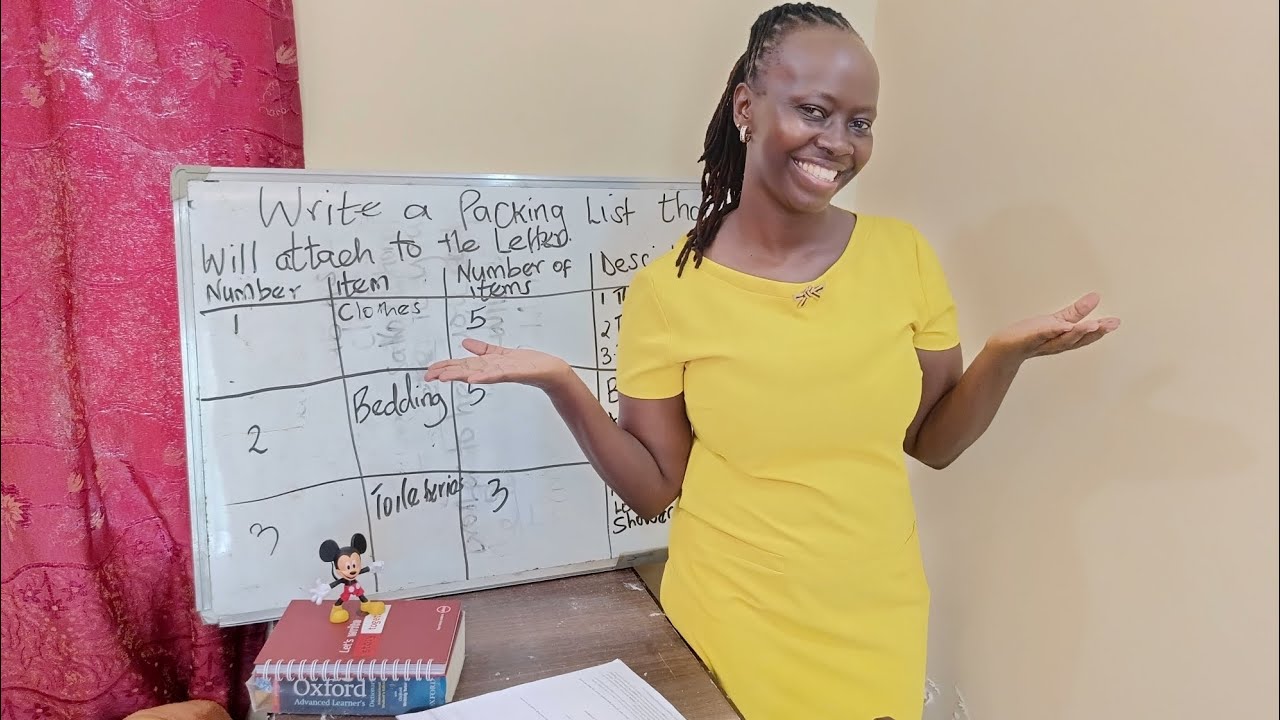 Write a Packing List tha
Will attach to the Letter.
Number Item Number of items Desc
1 Clothes 5 1 T
2 T
3.
2 Bedding 5 B
3 Toileteries 3
Shower
Let's write
Oxford
Advanced Learner's